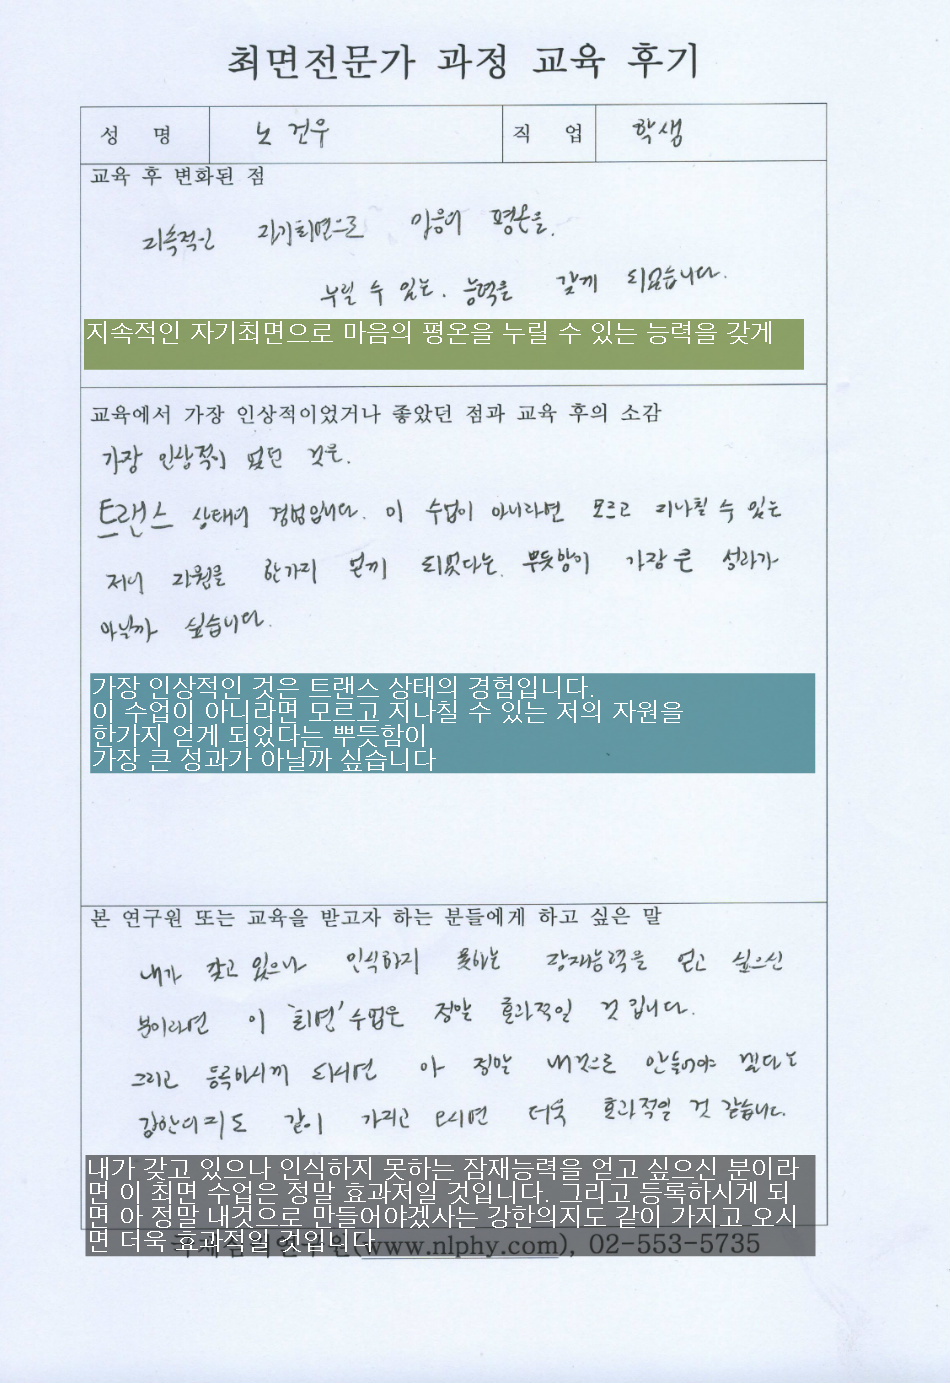 최면전문가 과정 교육 후기
성 명 노건우 직 업 학생
교육 후 변화된 점
지속적인 자기최면으로 마음의 평온을.
누릴 수 있는. 능력을 갖게 되었습니다.
지속적인 자기최면으로 마음의 평온을 누릴 수 있는 능력을 갖게
교육에서 가장 인상적이었거나 좋았던 점과 교육 후의 소감
가장 인상적이 었던 것은.
트랜스 상태의 경험입니다. 이 수업이 아니라면 모르고 지나칠 수 있는
저의 자원을 한가지 얻게 되었다는 뿌듯함이 가장 큰 성과가
아닐까 싶습니다.
가장 인상적인 것은 트랜스 상태의 경험입니다.
이 수업이 아니라면 모르고 지나칠 수 있는 저의 자원을
한가지 얻게 되었다는 뿌듯함이
가장 큰 성과가 아닐까 싶습니다
본 연구원 또는 교육을 받고자 하는 분들에게 하고 싶은 말
내가 갖고 있으나 인식하지 못하는 잠재능력을 얻고 싶으신
분이라면 이 '최면' 수업은 정말 효과적일 것 입니다.
그리고 등록하시게 되시면 아 정말 내것으로 만들어야 겠다는
강한의지도 같이 가지고 오시면 더욱 효과적일 것 같습니다.
내가 갖고 있으나 인식하지 못하는 잠재능력을 얻고 싶으신 분이라
면 이 최면 수업은 정말 효과저일 것입니다. 그리고 등록하시게 되
면 아 정말 내것으로 만들어야겠사는 강한의지도 같이 가지고 오시
면 더욱 효과적일 것입니다
(www.nlphy.com), 02-553-5735